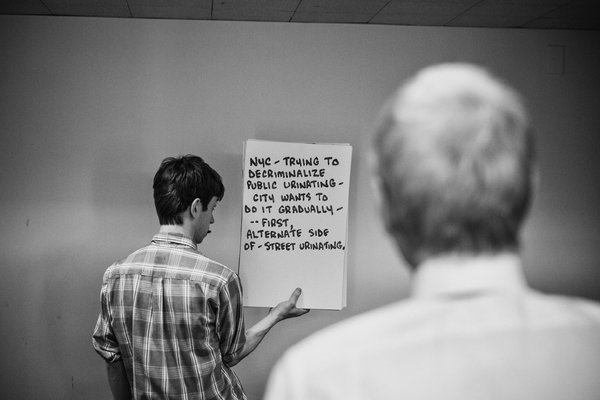 NYC - TRYING TO
DECRIMINALIZE
PUBLIC URINATING -
CITY WANTS TO
DO IT GRADUALLY -
-- FIRST,
ALTERNATE SIDE
OF - STREET URINATING.